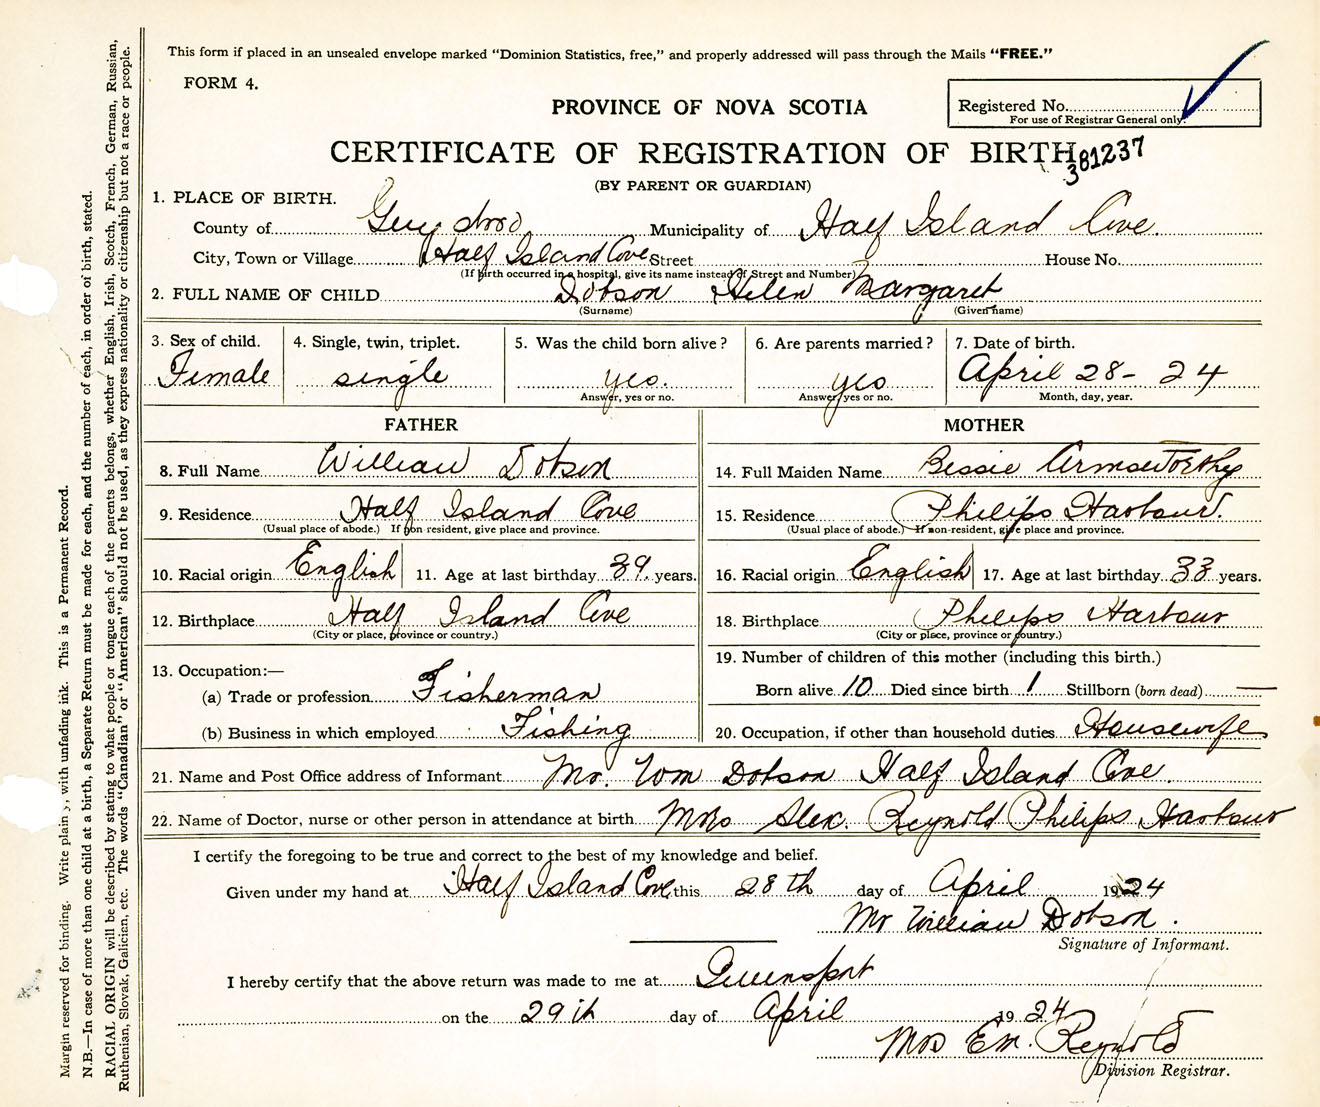 This form if placed in an unsealed envelope marked "Dominion Statistics, free," and properly addressed will pass through the Mails "FREE."
FORM 4.
PROVINCE OF NOVA SCOTIA
Registered No.
For use of Registrar General only.
CERTIFICATE OF REGISTRATION OF BIRTH
381237
(BY PARENT OR GUARDIAN)
1. PLACE OF BIRTH.
County of Guysboro Municipality of Half Island Cove.
City, Town or Village Half Island Cove Street House No.
(If birth occurred in a hospital, give its name instead of Street and Number)
2. FULL NAME OF CHILD Dobson Helen Margaret
(Surname) (Given name)
3. Sex of child. 4. Single, twin, triplet. 5. Was the child born alive? 6. Are parents married? 7. Date of birth.
Female single yes. yes April 28- 24
Answer, yes or no. Answer, yes or no. Month, day, year.
FATHER MOTHER
8. Full Name William Dobson 14. Full Maiden Name Bessie Armsworthy
9. Residence Half Island Cove 15. Residence Philips Harbour.
(Usual place of abode.) If non resident, give place and province. (Usual place of abode.) If non-resident, give place and province.
10. Racial origin English 11. Age at last birthday 39. years. 16. Racial origin English 17. Age at last birthday 33 years.
12. Birthplace Half Island Cove 18. Birthplace Philips Harbour
(City or place, province or country.) (City or place, province or country.)
13. Occupation:— 19. Number of children of this mother (including this birth.)
(a) Trade or profession Fisherman Born alive 10 Died since birth 1 Stillborn (born dead) —
(b) Business in which employed Fishing 20. Occupation, if other than household duties Housewife
21. Name and Post Office address of Informant Mr. Wm Dobson Half Island Cove.
22. Name of Doctor, nurse or other person in attendance at birth Mrs Alex. Reynold Philips Harbour
I certify the foregoing to be true and correct to the best of my knowledge and belief.
Given under my hand at Half Island Cove this 28th day of April 1924
Mr William Dobson.
Signature of Informant.
I hereby certify that the above return was made to me at Queensport
on the 29th day of April 1924
Mrs Em. Reynold
Division Registrar.
Margin reserved for binding. Write plainly, with unfading ink. This is a Permanent Record.
N.B.—In case of more than one child at a birth, a Separate Return must be made for each, and the number of each, in order of birth, stated.
RACIAL ORIGIN will be described by stating to what people or tongue each of the parents belongs, whether English, Irish, Scotch, French, German, Russian,
Ruthenian, Slovak, Galician, etc. The words "Canadian" or "American" should not be used, as they express nationality or citizenship but not a race or people.